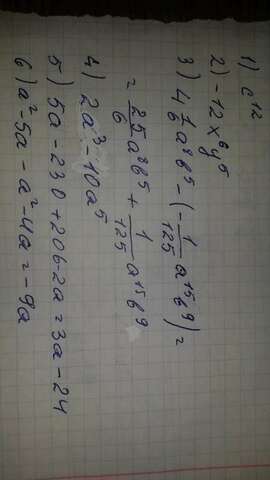 1) c¹²
2) -12x⁶y⁵
3) 4 1/6 a⁸b⁵ - (- 1/125 a¹⁵b⁹) =
= 25/6 a⁸b⁵ + 1/125 a¹⁵b⁹
4) 2a³ - 10a⁵
5) 5a - 230 + 206 - 2a = 3a - 24
6) a² - 5a - a² - 4a = -9a